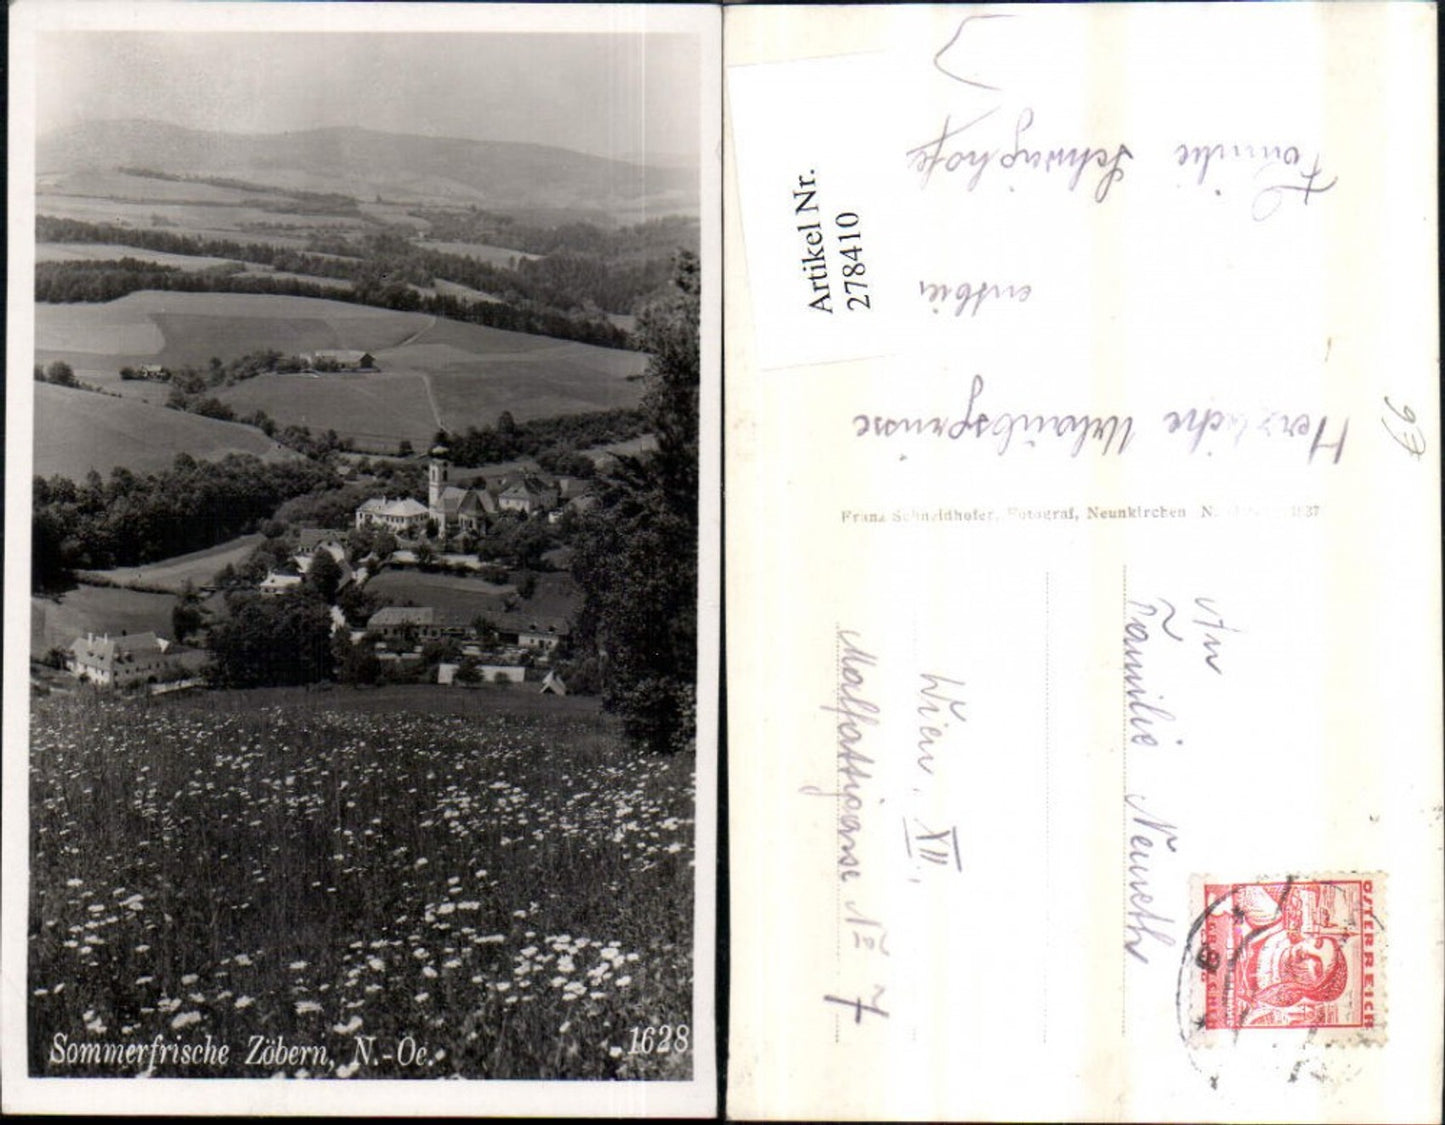 Sommerfrische Zöbern, N.-Oe.
1628
Artikel Nr.
278410
Herzliche Urlaubsgrüsse
entbietet
Familie
Franz Schneidhofer, Fotograf, Neunkirchen
An
Familie Neureth
Wien, XII.,
Malfattigasse No 7
ÖSTERREICH
GROSCHEN